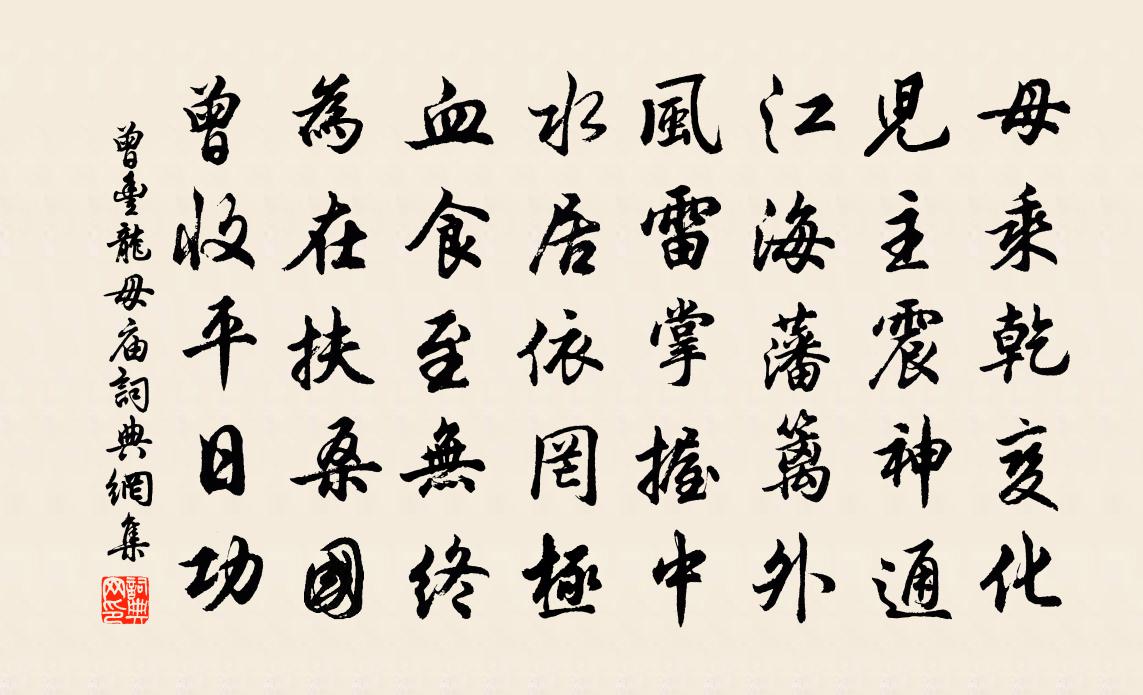 母乘乾变化
児主震神通
江海藩篱外
風雷掌握中
水居依罔極
血食至無終
為在扶桑國
曾收平日功
曾豊龍母庙詞典網集
詞典网印